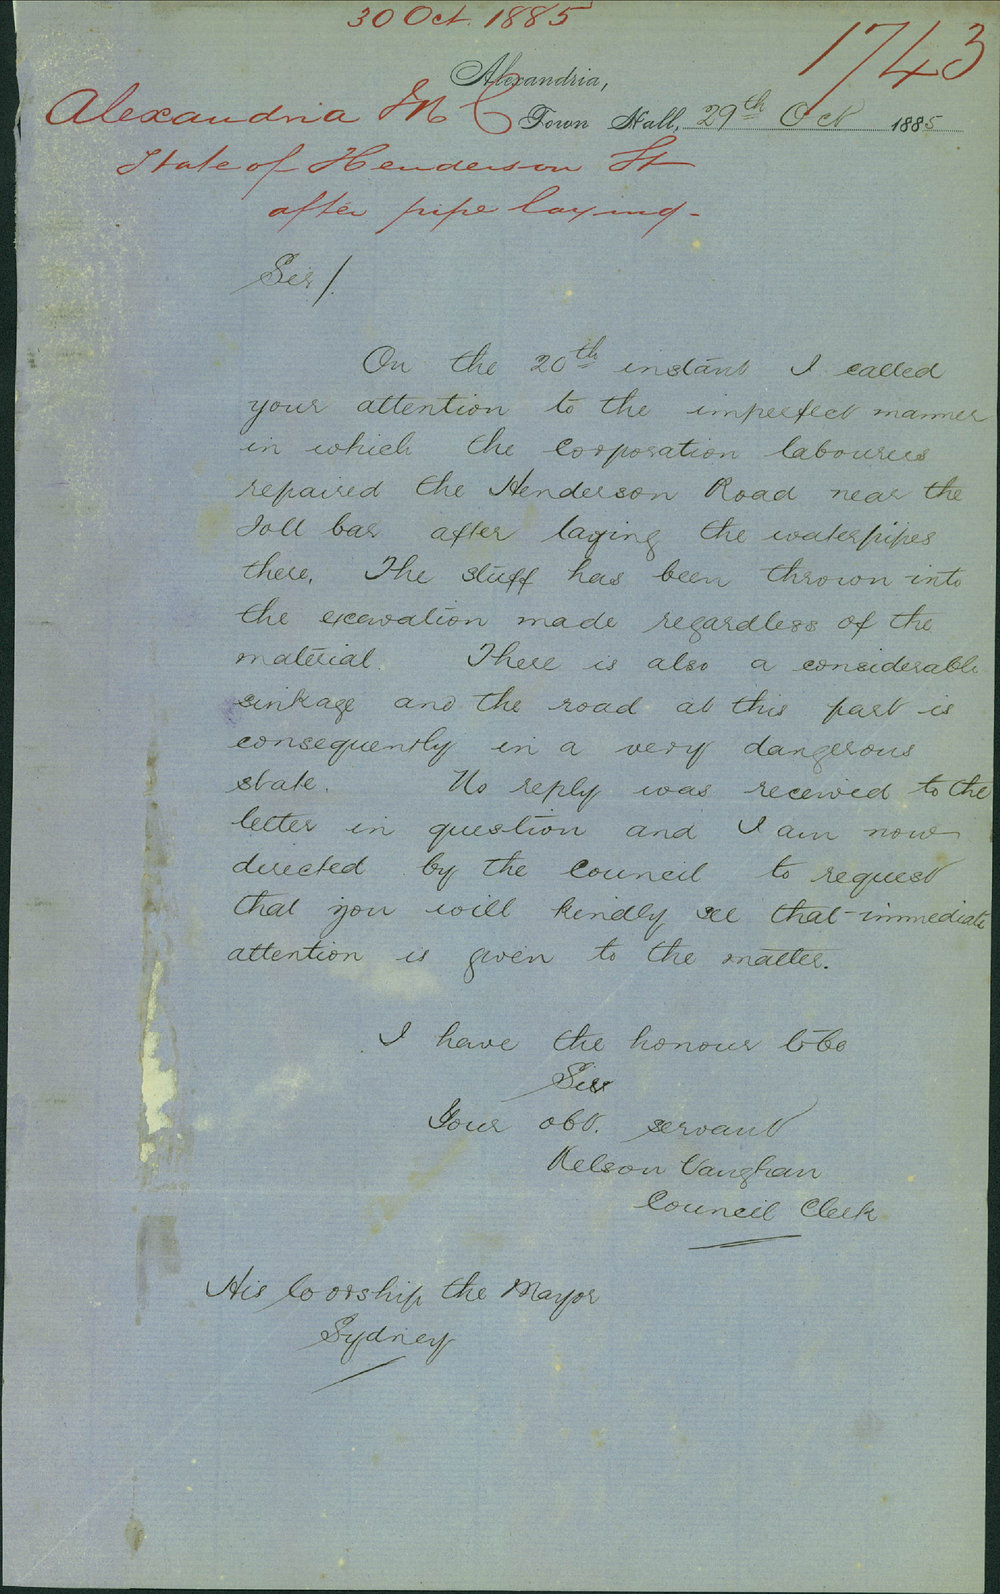 30 Oct. 1885
1743
Alexandria,
Alexandria M C
Town Hall, 29th Oct 1885
State of Henderson St
after pipe laying -
Sir/.
On the 20th instant I called
your attention to the imperfect manner
in which the Corporation labourers
repaired the Henderson Road near the
Toll bar after laying the waterpipes
there. The stuff has been thrown into
the excavation made regardless of the
material. There is also a considerable
sinkage and the road at this part is
consequently in a very dangerous
state. No reply was received to the
letter in question and I am now
directed by the Council to request
that you will kindly see that immediate
attention is given to the matter.
I have the honour to be
Sir
Your obt. servant
Nelson Vaughan
Council Clerk
His Worship the Mayor
Sydney